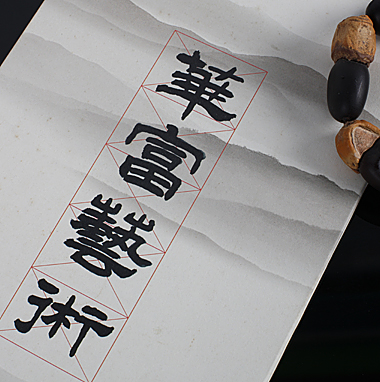 華富藝術